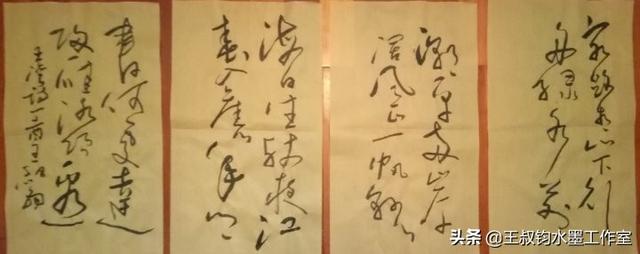 客路青山下行
舟绿水前
潮平两岸
阔风正一帆悬
海日生残夜江
春入旧年乡
书何处达
归雁洛阳边
王湾诗一首
头条 @王叔钧水墨工作室